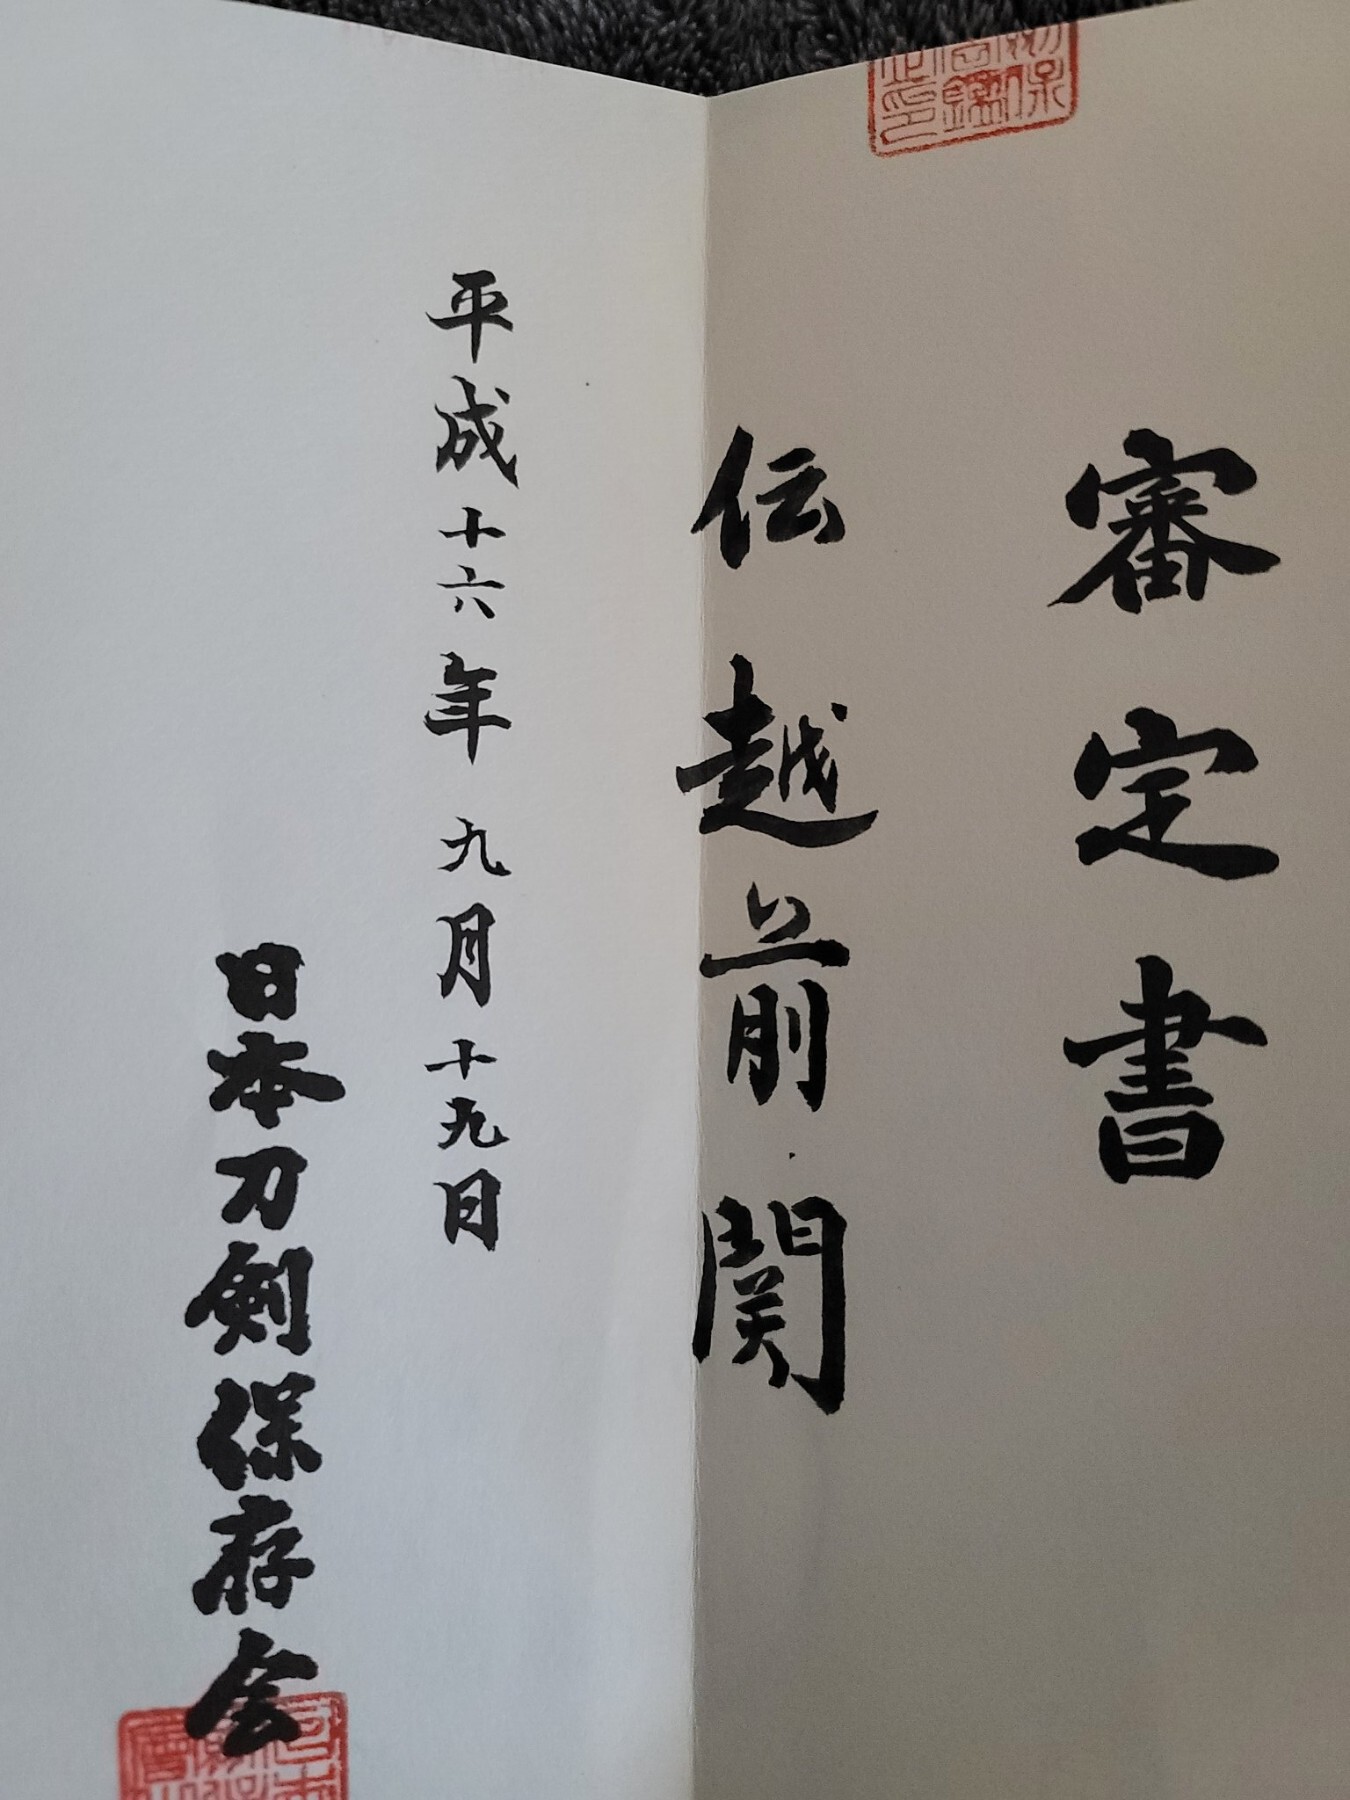 審定書
伝越前関
平成十六年九月十九日
日本刀剣保存会